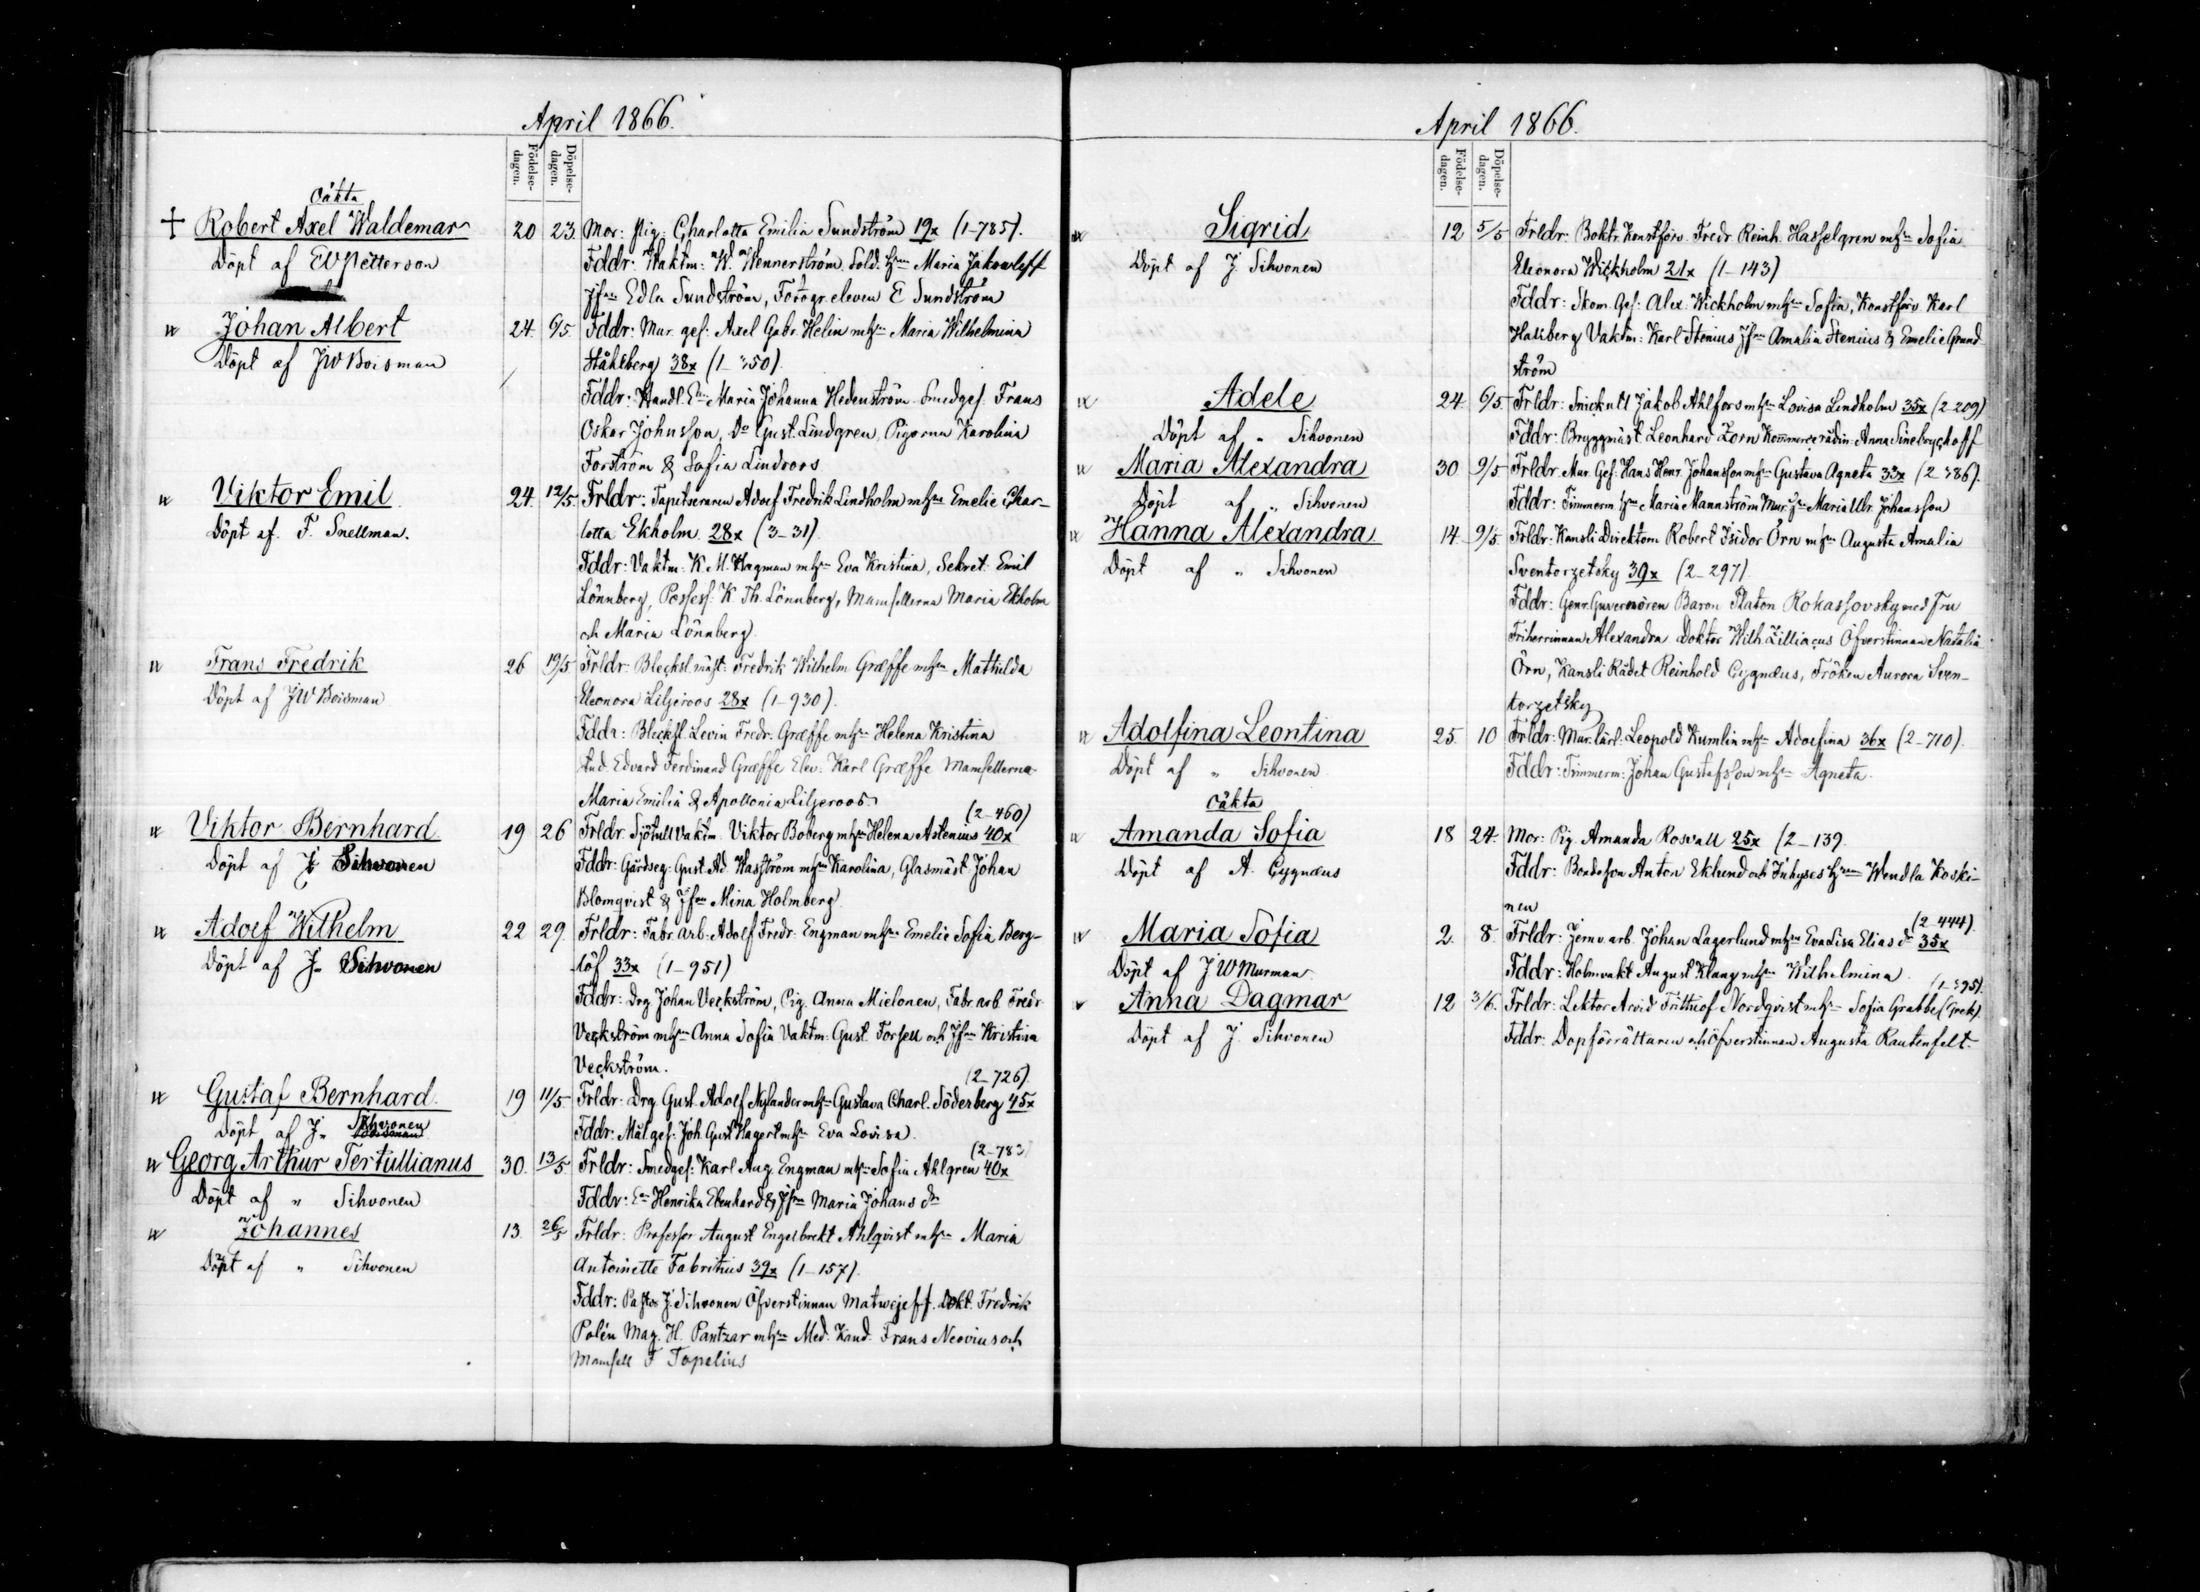 April 1866.
Födelse-
dagen.
Döpelse-
dagen.
Oäkta
Robert Axel Waldemar 20 23. Mor: Pig: Charlotta Emilia Sundström 19x (1-785).
Döpt af EW Petterson Fddr: Waktm: W. Wennerström, Sold. Maria Jakowleff
Edla Sundström, Fotogr. eleven E Sundström
Johan Albert 24. 6/5 Fddr: Mur. gef: Axel Gabr. Helin Maria Wilhelmina
Döpt af JW Boisman Ståhlberg 38x
Fddr: Handl. Maria Johanna Hedenström. Smedgef. Frans
Oskar Johnsson, Do Gust. Lindgren, Pigorna Karolina
Forström & Sofia Lindroos
Viktor Emil 24. 12/5 Frldr: Tapetseraren Adolf Fredrik Lindholm Emelie Char-
Döpt af F. Snellman. lotta Ekholm 28x (3-31).
Fddr: Vaktm: K. M. Hagman Eva Kristina, Sekret: Emil
Lönnberg, Possess: K Th. Lönnberg, Mamsellerna Maria Ekholm
och Maria Lönnberg.
Frans Fredrik 26 19/5 Frldr: Bleckslmäst: Fredrik Wilhelm Græffe Mathilda
Döpt af JW Boisman Eleonora Liljeroos 28x (1-930).
Fddr: Levin Fredr: Græffe Helena Kristina
Stud. Edvard Ferdinand Græffe Elev: Karl Græffe Mamsellerna
Maria Emilia & Apollonia Liljeroos.
(2-460)
Viktor Bernhard 19 26 Frldr. Sjötull Vaktm. Viktor Boberg Helena Astenius 40x
Döpt af J. Sihvonen Fddr: Gårdseg: Gust. Ad. Wasström Karolina, Glasmäst. Johan
Blomqvist & Mina Holmberg.
Adolf Wilhelm 22 29. Frldr: Fabr. arb: Adolf Fredr: Engman Emelie Sofia Berg-
Döpt af J. Sihvonen löf 33x (1-951)
Fddr: Drg Johan Veckström, Pig. Anna Mielonen, Fabr arb Fredr
Veckström Anna Sofia Vaktm: Gust. Forsell och Kristina
Veckström.
(2-726).
Gustaf Bernhard. 19 11/5 Frldr: Drg Gust. Adolf Nylander Gustava Charl. Söderberg 45x
Döpt af J. Sihvonen Fddr: Mål. gef: Joh. Gust Hagert Eva Lovisa.
Georg Arthur Tertullianus 30. 13/5 Frldr: Smedgef: Karl Aug. Engman Sofia Ahlgren 40x
Döpt af " Sihvonen Fddr: Henrika Ekenhard & Maria Johans dr
Johannes 13. 26/5 Frldr: Professor August Engelbrekt Ahlqvist Maria
Döpt af " Sihvonen Antoinette Fabritius 39x (1-157).
Fddr: Pastor J. Sihvonen Öfverstinnan Matwejeff. Dokt. Fredrik
Polén Mag. H. Pantzar Med. Kand. Frans Neovius och
Mamsell F Topelius
April 1866.
Födelse-
dagen.
Döpelse-
dagen.
Sigrid 12 5/5 Frldr: Boktr. Konstförv. Fredr. Reinh. Hasselgren Sofia
Döpt af J Sihvonen Eleonora Wickholm 21x (1-143)
Fddr: Skom. Gef: Alex. Wickholm Sofia, Konstförv. Karl
Hallberg Vaktm: Karl Stenius Amalia Stenius & Emelie Grund
ström
Adele 24 6/5 Frldr: Jakob Ahlfors Lovisa Lindholm 35x (2-209)
Döpt af " Sihvonen Fddr: Bryggmäst. Leonhard Zorn Kommerserådin: Anna Sinebrychoff
Maria Alexandra 30 9/5 Frldr Mur. Gef: Hans Henr. Johansson Gustava Agneta 33x
Döpt af " Sihvonen Fddr: Timmerm Maria Mannström Mur. Maria Ulr. Johansson
Hanna Alexandra 14. 9/5 Frldr: Kansli Direktorn Robert Isidor Örn Augusta Amalia
Döpt af " Sihvonen Sventorzetsky 39x (2-297).
Fddr: Genr. Guvernören Baron Platon Rokassovsky med Fru
Friherrinnan Alexandra Doktor Wilh. Zilliacus Öfverstinnan Natalia
Örn, Kansli Rådet Reinhold Cygnæus, Fröken Aurora Sven-
torzetsky
Adolfina Leontina 25. 10 Frldr: Mur. lärl: Leopold Kumlin Adolfina 36x (2-710).
Döpt af " Sihvonen. Fddr: Timmerm: Johan Gustafsson Agneta.
Oäkta
Amanda Sofia 18 24. Mor: Pig. Amanda Rosvall 25x (2-139.
Döpt af A. Cygnæus Fddr: Bondeson Anton Eklund och Inhyses Wendla Koski-
nen
(2-444).
Maria Sofia 2. 8. Frldr: Jernv. arb. Johan Lagerlund Eva Lisa Elias dr 35x
Döpt af J W Murman. Fddr: Holmvakt August Klang Wilhelmina
Anna Dagmar 12 3/6. Frldr: Lektor Arvid Frithiof Nordqvist Sofia Grabbe (Grek).
Döpt af J. Sihvonen Fddr: Dopförrättaren och Öfverstinnan Augusta Rautenfelt.